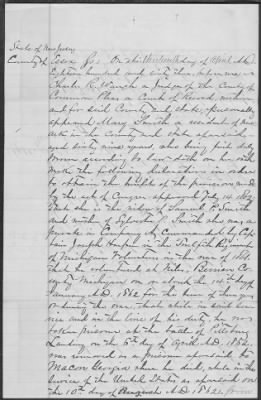 State of New Jersey
County of Essex ss. On this day of April A.D.
Eighteen hundred and sixty three, before me
Charles R. a Judge of the Court of
Common Pleas a Court of Record within
and for said County and State, personally
appeared Mary Smith a resident of
in the County and State aforesaid
aged sixty nine years, who being first duly
sworn according to law doth on her oath
make the following declaration in order
to obtain the benefits of the provision made
by the act of Congress approved July 14 1862
That she is the widow of Samuel P. Smith
and mother of Sylvester Smith who was a
private in Company A, Commanded by Cap
tain Joseph Harper in the Twelfth Regiment
of Michigan Volunteers in the war of 1861
that he volunteered at Niles, Berrien Co
unty Michigan, on or about the 14th day of
January A.D. 1862 for the term of three years
or during the war. That while in said serv
ice and in the line of his duty, he was
taken prisoner at the battle of Pittsburg
Landing on the 6th day of April A.D. 1862,
was removed as a prisoner aforesaid to
Macon Georgia where he died, while in the
service of the United States as aforesaid on
the 10th day of August A.D. 1862,